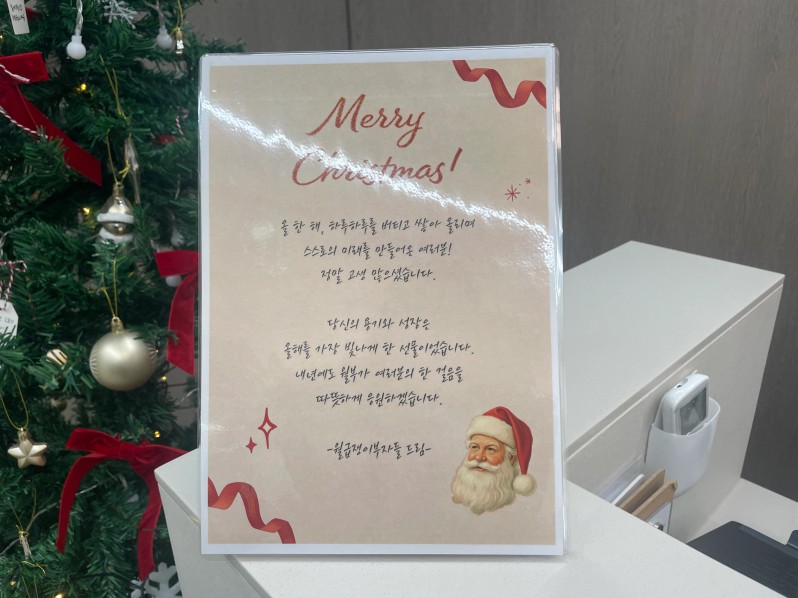 Merry
Christmas!
올 한 해, 하루하루를 버티고 쌓아 올리며
스스로의 미래를 만들어온 여러분!
정말 고생 많으셨습니다.
당신의 용기와 성장은
올해를 가장 빛나게 한 선물이었습니다.
내년에도 월부가 여러분의 한 걸음을
따뜻하게 응원하겠습니다.
-월급쟁이부자들 드림-